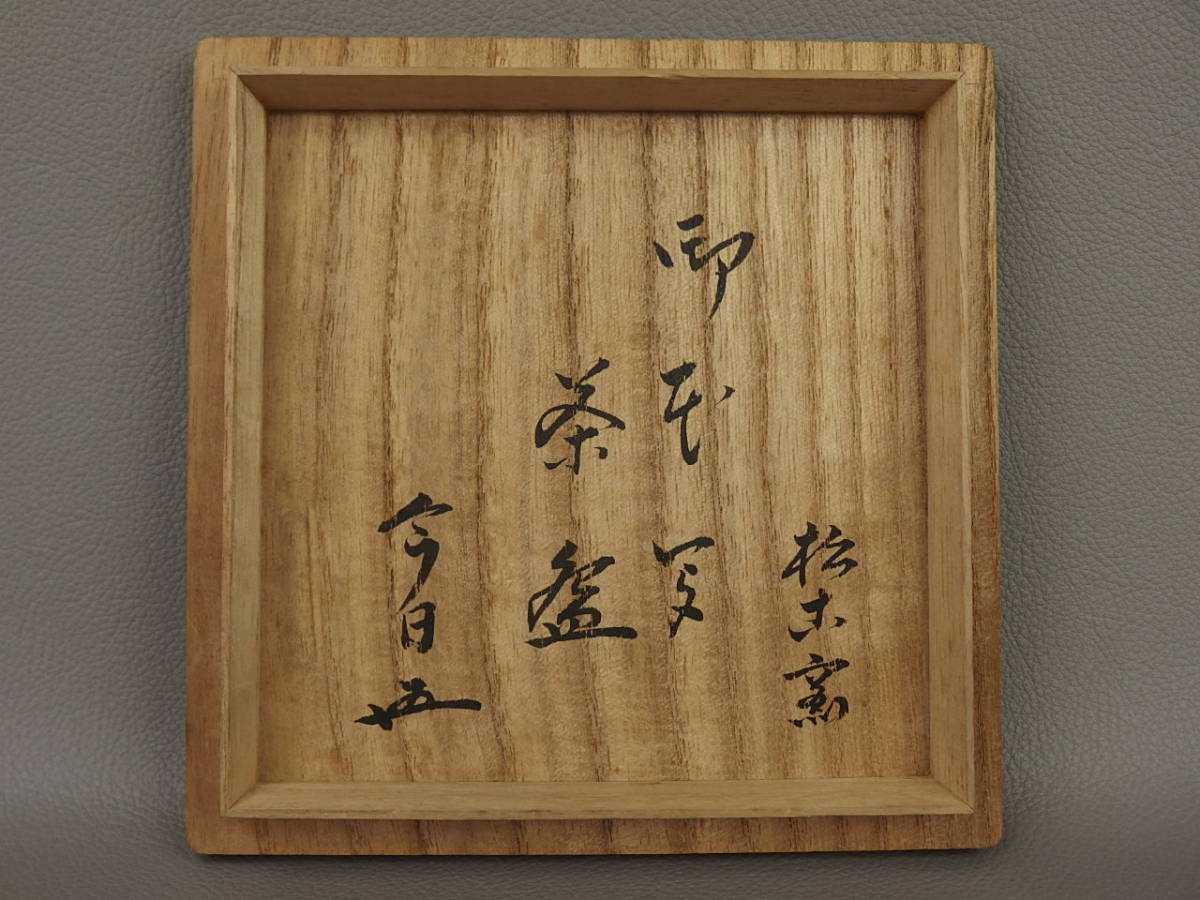 松古窯
印花写
茶盌
今日